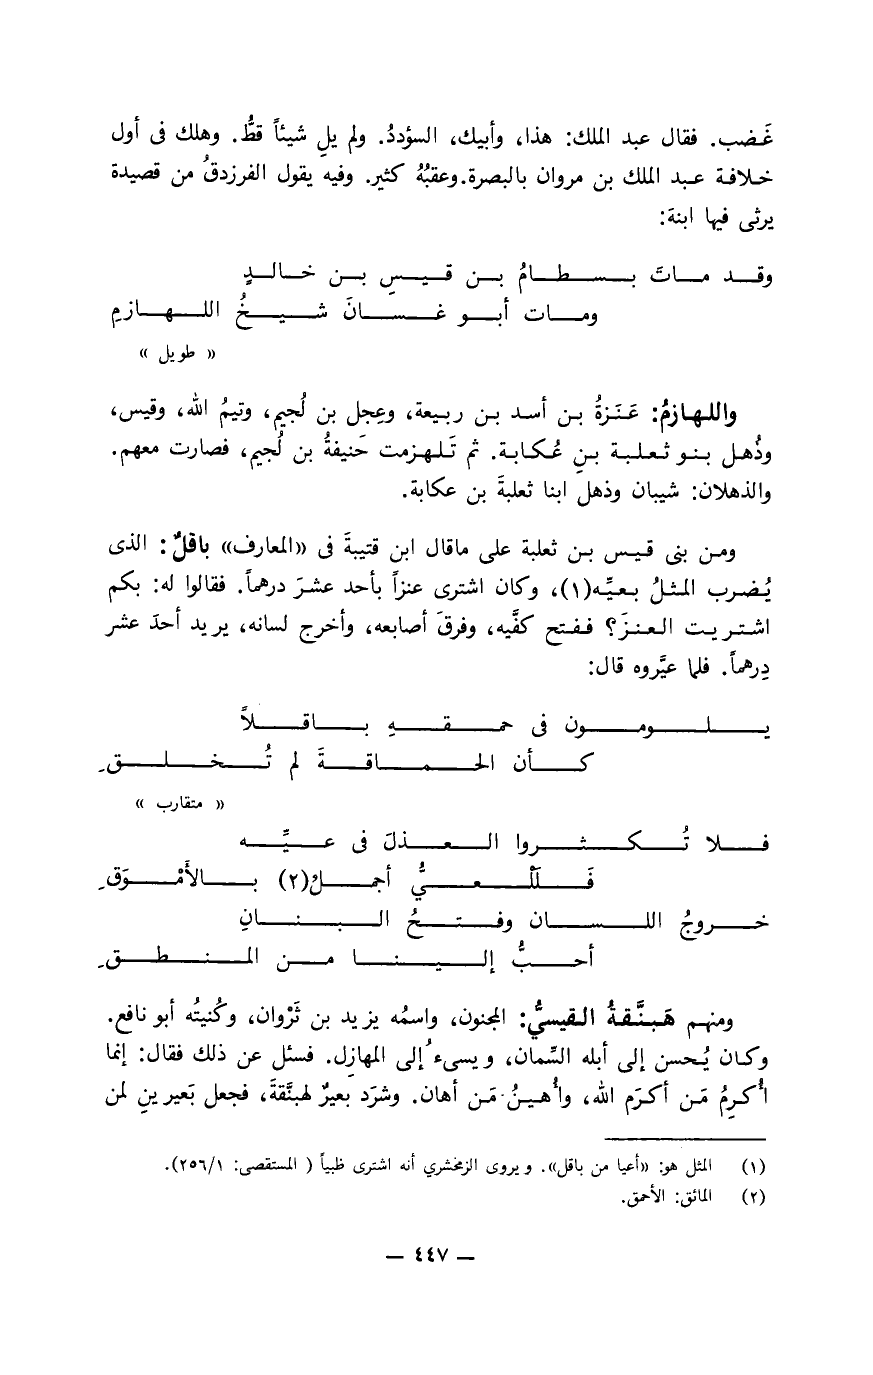 غَضب. فقال عبد الملك: هذا، وأبيك، السؤددُ. ولم يلِ شيئاً قطُّ. وهلك فى أول
خلافة عبد الملك بن مروان بالبصرة. وعقبُهُ كثير. وفيه يقول الفرزدقُ من قصيدة
يرثى فيها ابنة:
وقد ماتَ بسطامُ بن قيسِ بن خالدٍ
ومات أبو غسانَ شيخُ اللهازمِ
« طويل »
واللهازمُ: عَنَزةُ بن أسد بن ربيعة، وعِجل بن لُجيم، وتيمُ الله، وقيس،
وذُهل بنو ثعلبة بنِ عُكابة. ثم تَلهزمت حَنيفةُ بن لُجيم، فصارت معهم.
والذهلان: شيبان وذهل ابنا ثعلبةَ بن عكابة.
ومن بنى قيس بن ثعلبة على ماقال ابن قتيبةَ فى «المعارف» باقلٌ: الذى
يُضرب المثلُ بعيِّه(١)، وكان اشترى عنزاً بأحد عشرَ درهماً. فقالوا له: بكم
اشتريت العنزَ؟ ففتح كفَّيه، وفرقَ أصابعه، وأخرج لسانه، يريد أحدَ عشر
دِرهماً. فلما عيَّروه قال:
يلومون فى حمقهِ باقلاً
كأن الحماقةَ لم تُخلقِ
« متقارب »
فلا تُكثروا العذلَ فى عيِّه
فَلَلْعيُّ أجملُ(٢) بالأَمْوَقِ
خروجُ اللسان وفتحُ البنانِ
أحبُّ إلينا من المنطقِ
ومنهم هَبنَّقةُ القيسيُّ: المجنون، واسمُه يزيد بن ثَرْوان، وكُنيتُه أبو نافع.
وكان يُحسن إلى أبله السِّمان، ويسيءُ إلى المهازِل. فسئل عن ذلك فقال: إنما
أُكرِمُ مَن أكرَم الله، وأُهينُ مَن أهان. وشرَد بعيرٌ لهبنَّقةَ، فجعل بَعيرينِ لمن
(١) المثل هو: «أعيا من باقل». ويروى الزمخشري أنه اشترى ظبياً ( المستقصى: ٢٥٦/١).
(٢) المائق: الأحمق.
— ٤٤٧ —